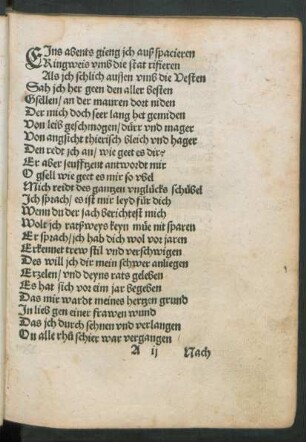 EIns abents gieng jch auß spacieren
Ringweis vmb die stat rifieren
Als jch schlich aussen vmb die Vesten
Sah jch her geen den aller besten
Gsellen / an der mauren dort niden
Der mich doch seer lang het gemiden
Von leib geschmogen / dürr vnd mager
Von angsicht thierisch bleich vnd hager
Den redt jch an / wie geet es dir?
Er aber seuffzent antwordt mir
O gsell wie geet es mir so vbel
Mich reidt des gantzen vnglücks schübel
Jch sprach / es ist mir leyd für dich
Wenn du der sach berichtest mich
Wolt jch ratßweys keyn müe nit sparen
Er sprach / jch hab dich wol vor jaren
Erkennet trew stil vnd verschwigen
Des will jch dir mein schwer anliegen
Erzelen / vnd deyns rats geleben
Es hat sich vor eim jar begeben
Das mir wardt meines hertzen grund
In lieb gen einer frawen wund
Das jch durch sehnen vnd verlangen
On alle rhů schier war vergangen
A ij Nach